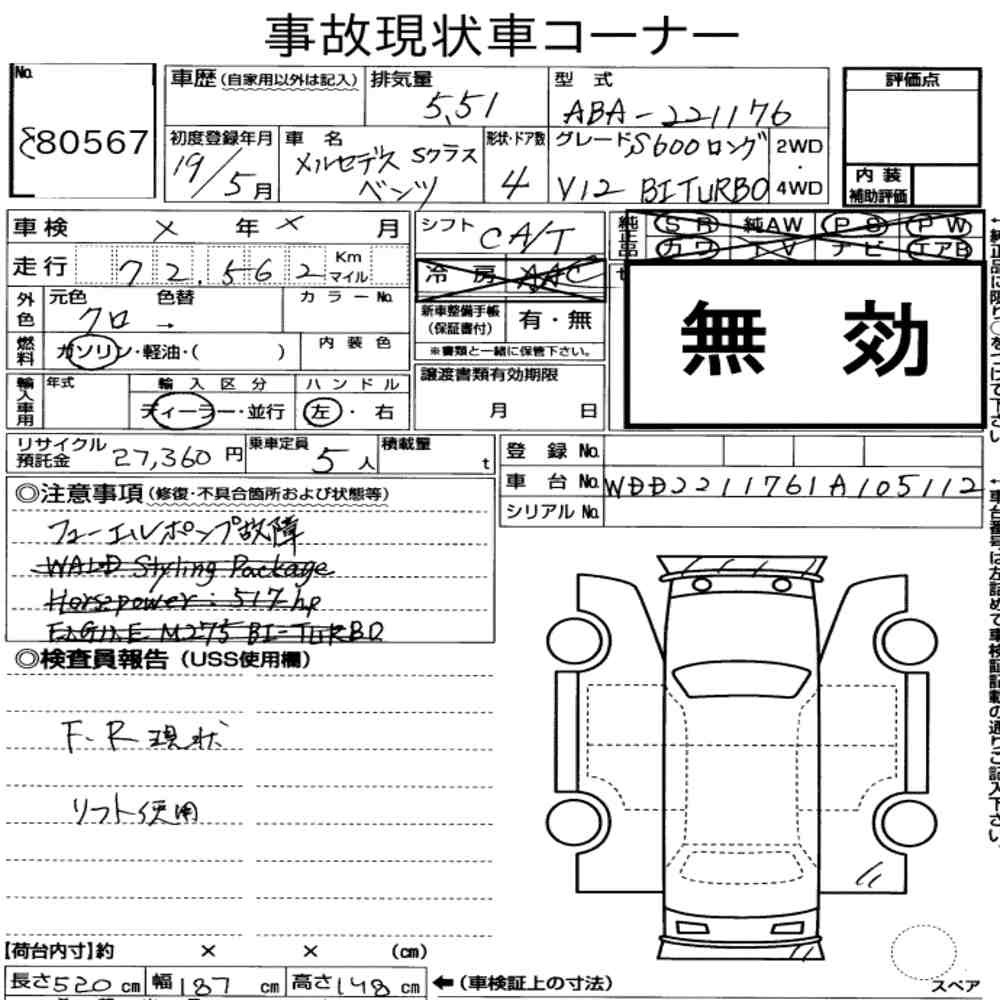 事故現状車コーナー
No. 80567
車歴 (自家用以外は記入)
排気量 5,51
型式 ABA-221176
評価点
初度登録年月 19/5月
車名 メルセデス Sクラス ベンツ
形状・ドア数 4
グレード S600ロング V12 BITURBO
2WD・4WD
内装補助評価
車検 × 年 × 月
シフト CA/T
純正品 SR 純AW PS PW
カワ TV ナビ エアB
走行 72,562 Km マイル
冷房 AAC
無効
外色 元色 クロ 色替 →
カラーNo.
新車整備手帳(保証書付) 有・無
※書類と一緒に保管下さい。
燃料 ガソリン・軽油・( )
内装色
譲渡書類有効期限 月 日
輸入車用 年式
輸入区分 ディーラー・並行
ハンドル 左・右
リサイクル預託金 27,360円
乗車定員 5人
積載量 t
登録No.
車台No. WDD2211761A105112
シリアルNo.
◎注意事項(修復・不具合箇所および状態等)
フューエルポンプ故障
WALD Styling Package
Horsepower: 517 hp
ENGINE M275 BI-TURBO
◎検査員報告(USS使用欄)
F、R 現状
リフト使用
【荷台内寸】約 × × (cm)
長さ520cm 幅187cm 高さ148cm
←(車検証上の寸法)
スペア
←純正品に限り〇をつけて下さい
←車台番号は左詰めで車検証記載の通りご記入下さい。